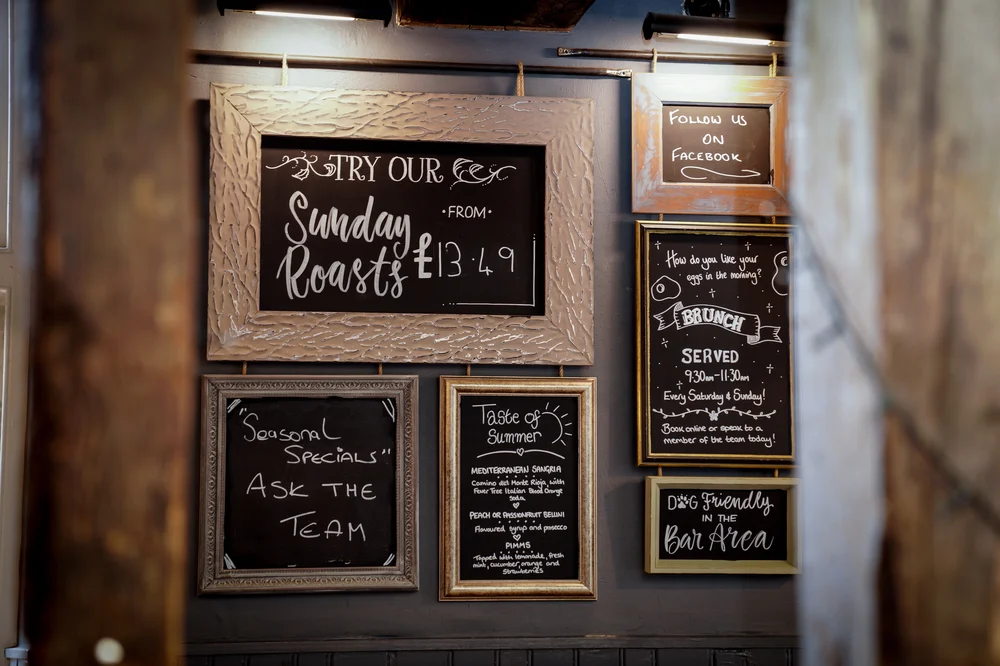 TRY OUR
Sunday
Roasts
·FROM·
£13.49
FOLLOW US
ON
FACEBOOK
How do you like your
eggs in the morning?
BRUNCH
SERVED
9:30am-11:30am
Every Saturday & Sunday!
Book online or speak to a
member of the team today!
"Seasonal
Specials"
Ask the
Team
Taste of
Summer
MEDITERRANEAN SANGRIA
Camino del Monte Rioja, with
Fever Tree Italian Blood Orange
Soda
PEACH OR PASSIONFRUIT BELLINI
Flavoured syrup and prosecco
PIMMS
Topped with lemonade, fresh
mint, cucumber, orange and
strawberries
DOG Friendly
IN THE
Bar Area